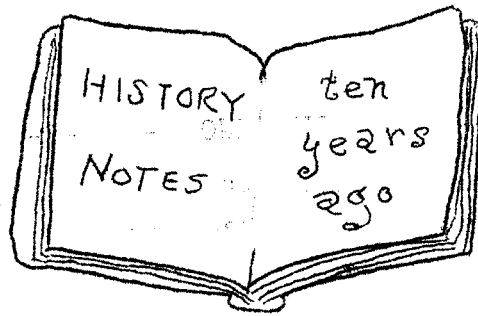 HISTORY
NOTES
ten
years
ago